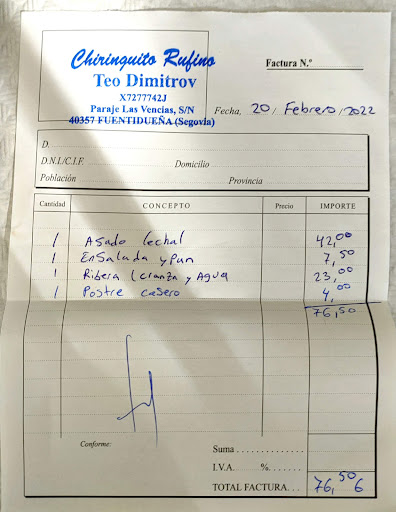 Chiringuito Rufino
Teo Dimitrov
X7277742J
Paraje Las Vencias, S/N
40357 FUENTIDUEÑA (Segovia)
Factura N.º
Fecha, 20 / Febrero / 2022
D.
D.N.I./C.I.F. Domicilio
Población Provincia
Cantidad CONCEPTO Precio IMPORTE
1 Asado lechal 42,00
1 Ensalada y pan 7,50
1 Ribera crianza y Agua 23,00
1 Postre casero 4,00
76,50
Conforme:
Suma
I.V.A. %
TOTAL FACTURA 76,50 €